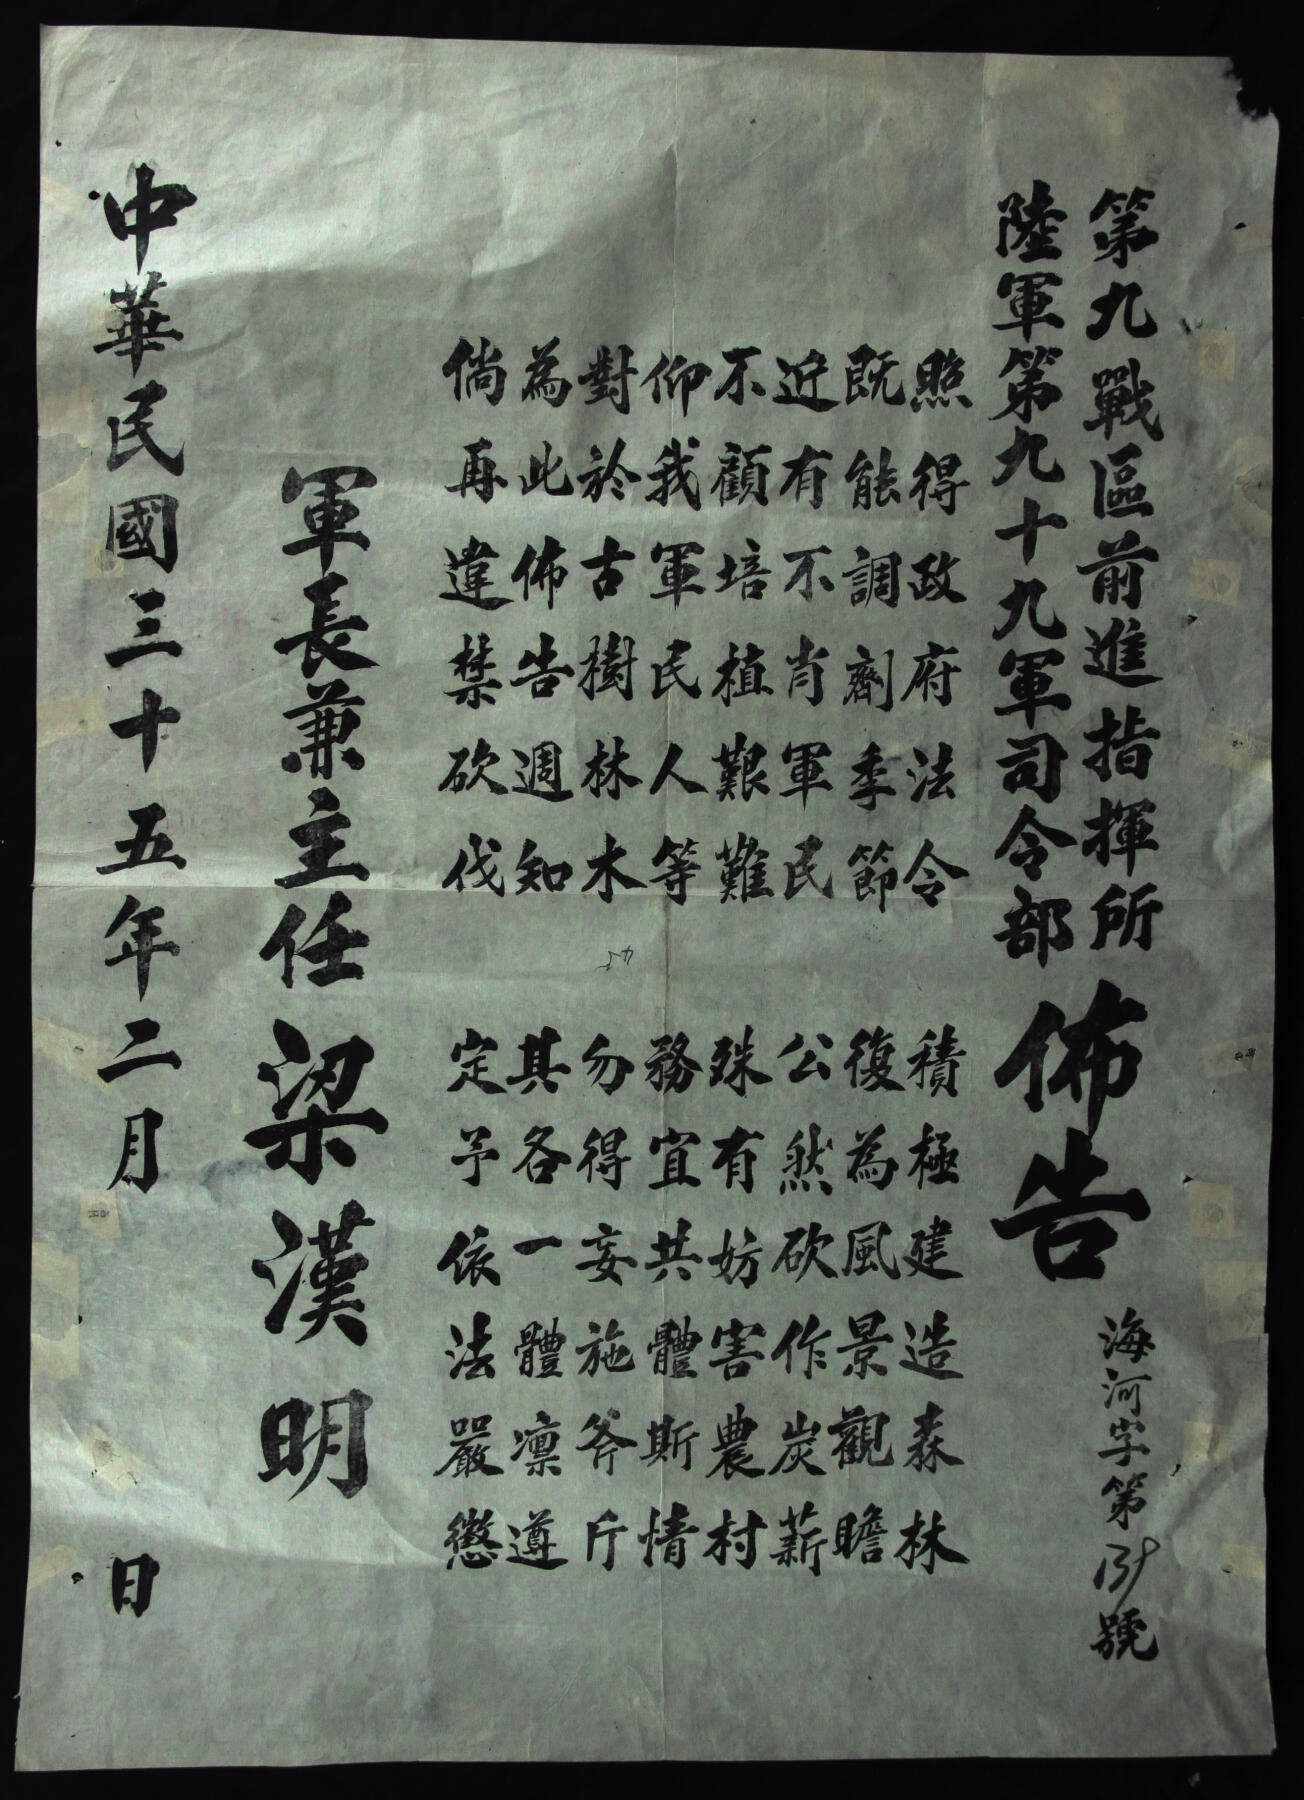 第九戰區前進指揮所
陸軍第九十九軍司令部
佈告
海河字第131號
照得政府法令　積極建造森林
既能調劑季節　復為風景觀瞻
近有不肖軍民　公然砍作炭薪
不顧培植艱難　殊有妨害農村
仰我軍民人等　務宜共體斯情
對於古樹林木　勿得妄施斧斤
為此佈告週知　其各一體凜遵
倘再違禁砍伐　定予依法嚴懲
軍長兼主任梁漢明
中華民國三十五年二月　日